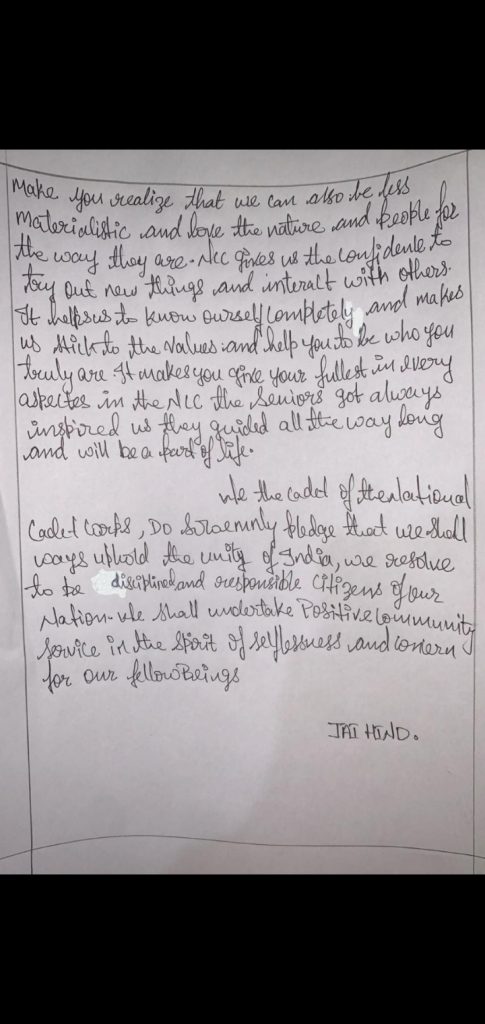 Make you realize that we can also be less
materialistic and love the nature and people for
the way they are. NCC gives us the confidence to
try out new things and interact with others.
It helps us to know ourself completely and makes
us stick to the values and help you to be who you
truly are. It makes you give your fullest in every
aspectes in the NCC the Seniors got always
inspired us they guided all the way long
and will be a part of life.
We the cadet of the National
Cadet Corps, Do Soraemnly pledge that we shall
ways uphold the unity of India, we resolve
to be disciplined and responsible citizens of our
Nation. We shall undertake Positive Community
Service in the Spirit of selflessness and concern
for our fellow Beings
JAI HIND.